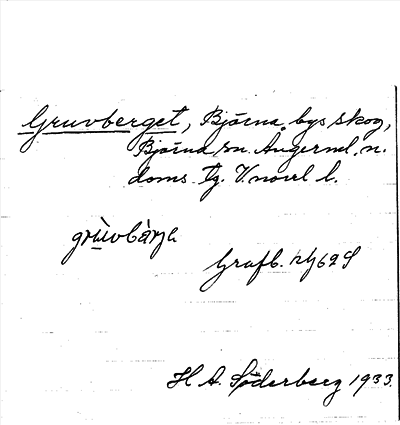 Gruvberget, Bjärna bys skog,
Bjärna sn. Ångerml. n.
doms. tg. V.norrl l.
grùvbàrje
Grafb. 62 S
H A. Söderberg 1933.